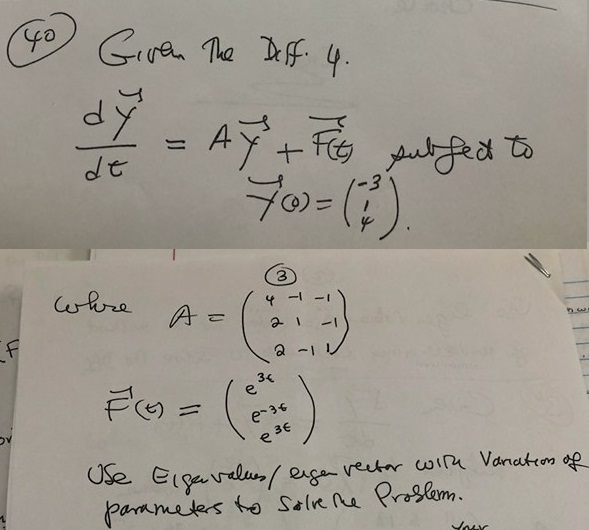 40 Given The Diff. 4.
dY/dt = AY + F(t) subject to
Y(0) = (-3 1 4).
3
where A = (4 -1 -1
2 1 -1
2 -1 1)
F(t) = (e^3t
e^-3t
e^3t)
Use Eigenvalues/eigenvector with Variation of
parameters to Solve the Problem.
your